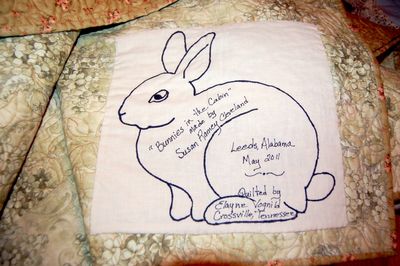 "Bunnies in the Cabin"
made by
Susan Raney Cleveland
Leeds, Alabama
May 2011
Quilted by
Elayne Vognild
Crossville, Tennessee